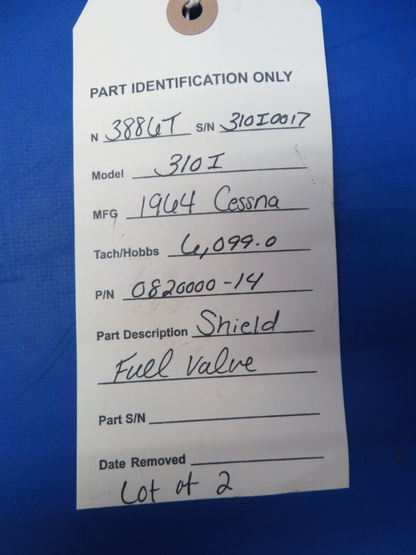 PART IDENTIFICATION ONLY
N 3886T S/N 310I0017
Model 310I
MFG 1964 Cessna
Tach/Hobbs 6,099.0
P/N 0820000-14
Part Description Shield
Fuel Valve
Part S/N
Date Removed
Lot of 2